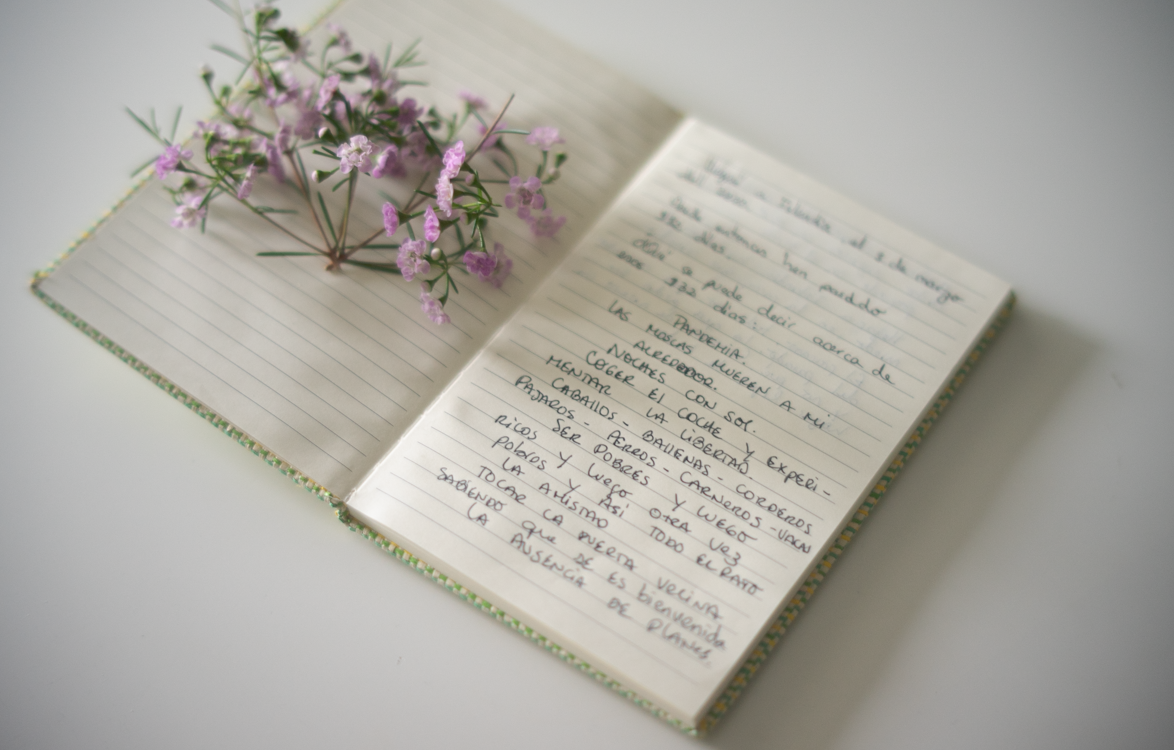 el 8 de marzo
del
Desde entonces han pasado
932 días.
Qué se puede decir acerca de
esos 932 días:
PANDEMIA.
LAS MOSCAS MUEREN A MI
ALREDEDOR.
NOCHES CON SOL.
COGER EL COCHE Y EXPERI-
MENTAR LA LIBERTAD.
CABALLOS - BALLENAS - CARNEROS - CORDEROS
PAJAROS - PERROS - VACAS
SER POBRES Y LUEGO
RICOS Y LUEGO OTRA VEZ
pobres Y ASÍ TODO EL RATO
LA AMISTAD
TOCAR LA PUERTA VECINA
SABIENDO que SE ES bienvenida
LA AUSENCIA DE PLANES.